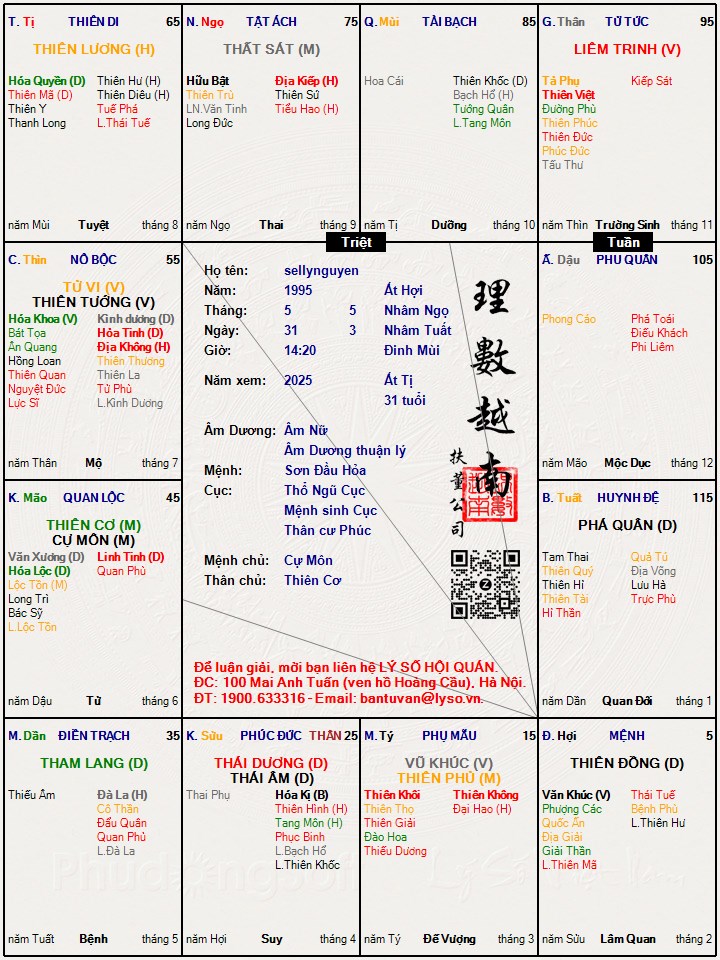 T. Tị THIÊN DI 65
THIÊN LƯƠNG (H)
Hóa Quyền (D) Thiên Hư (H)
Thiên Mã (D) Thiên Diêu (H)
Thiên Y Tuế Phá
Thanh Long L.Thái Tuế
năm Mùi Tuyệt tháng 8
N. Ngọ TẬT ÁCH 75
THẤT SÁT (M)
Hữu Bật Địa Kiếp (H)
Thiên Trù Thiên Sứ
LN.Văn Tinh Tiểu Hao (H)
Long Đức
năm Ngọ Thai tháng 9
Q. Mùi TÀI BẠCH 85
Hoa Cái Thiên Khốc (D)
Bạch Hổ (H)
Tướng Quân
L.Tang Môn
năm Tị Dưỡng tháng 10
G. Thân TỬ TỨC 95
LIÊM TRINH (V)
Tả Phụ Kiếp Sát
Thiên Việt
Đường Phù
Thiên Phúc
Thiên Đức
Phúc Đức
Tấu Thư
năm Thìn Trường Sinh tháng 11
Triệt
Tuần
C. Thìn NÔ BỘC 55
TỬ VI (V)
THIÊN TƯỚNG (V)
Hóa Khoa (V) Kình dương (D)
Bát Tọa Hỏa Tinh (D)
Ân Quang Địa Không (H)
Hồng Loan Thiên Thương
Thiên Quan Thiên La
Nguyệt Đức Tử Phù
Lực Sĩ L.Kình Dương
năm Thân Mộ tháng 7
Họ tên: sellynguyen
Năm: 1995 Ất Hợi
Tháng: 5 5 Nhâm Ngọ
Ngày: 31 3 Nhâm Tuất
Giờ: 14:20 Đinh Mùi
Năm xem: 2025 Ất Tị
31 tuổi
Âm Dương: Âm Nữ
Âm Dương thuận lý
Mệnh: Sơn Đầu Hỏa
Cục: Thổ Ngũ Cục
Mệnh sinh Cục
Thân cư Phúc
Mệnh chủ: Cự Môn
Thân chủ: Thiên Cơ
理數越南
扶董公司
Z
Để luận giải, mời bạn liên hệ LÝ SỐ HỘI QUÁN.
ĐC: 100 Mai Anh Tuấn (ven hồ Hoàng Cầu), Hà Nội.
ĐT: 1900.633316 - Email: bantuvan@lyso.vn.
Ấ. Dậu PHU QUÂN 105
Phong Cáo Phá Toái
Điếu Khách
Phi Liêm
năm Mão Mộc Dục tháng 12
K. Mão QUAN LỘC 45
THIÊN CƠ (M)
CỰ MÔN (M)
Văn Xương (D) Linh Tinh (D)
Hóa Lộc (D) Quan Phù
Lộc Tồn (M)
Long Trì
Bác Sỹ
L.Lộc Tồn
năm Dậu Tử tháng 6
B. Tuất HUYNH ĐỆ 115
PHÁ QUÂN (D)
Tam Thai Quả Tú
Thiên Quý Địa Võng
Thiên Hỉ Lưu Hà
Thiên Tài Trực Phù
Hỉ Thần
năm Dần Quan Đới tháng 1
M. Dần ĐIỀN TRẠCH 35
THAM LANG (D)
Thiếu Âm Đà La (H)
Cô Thần
Đẩu Quân
Quan Phủ
L.Đà La
năm Tuất Bệnh tháng 5
K. Sửu PHÚC ĐỨC THÂN 25
THÁI DƯƠNG (D)
THÁI ÂM (D)
Thai Phụ Hóa Kị (B)
Thiên Hình (H)
Tang Môn (H)
Phục Binh
L.Bạch Hổ
L.Thiên Khốc
năm Hợi Suy tháng 4
M. Tý PHỤ MẪU 15
VŨ KHÚC (V)
THIÊN PHỦ (M)
Thiên Khôi Thiên Không
Thiên Thọ Đại Hao (H)
Thiên Giải
Đào Hoa
Thiếu Dương
năm Tý Đế Vượng tháng 3
Đ. Hợi MỆNH 5
THIÊN ĐỒNG (D)
Văn Khúc (V) Thái Tuế
Phượng Các Bệnh Phù
Quốc Ấn L.Thiên Hư
Địa Giải
Giải Thần
L.Thiên Mã
năm Sửu Lâm Quan tháng 2